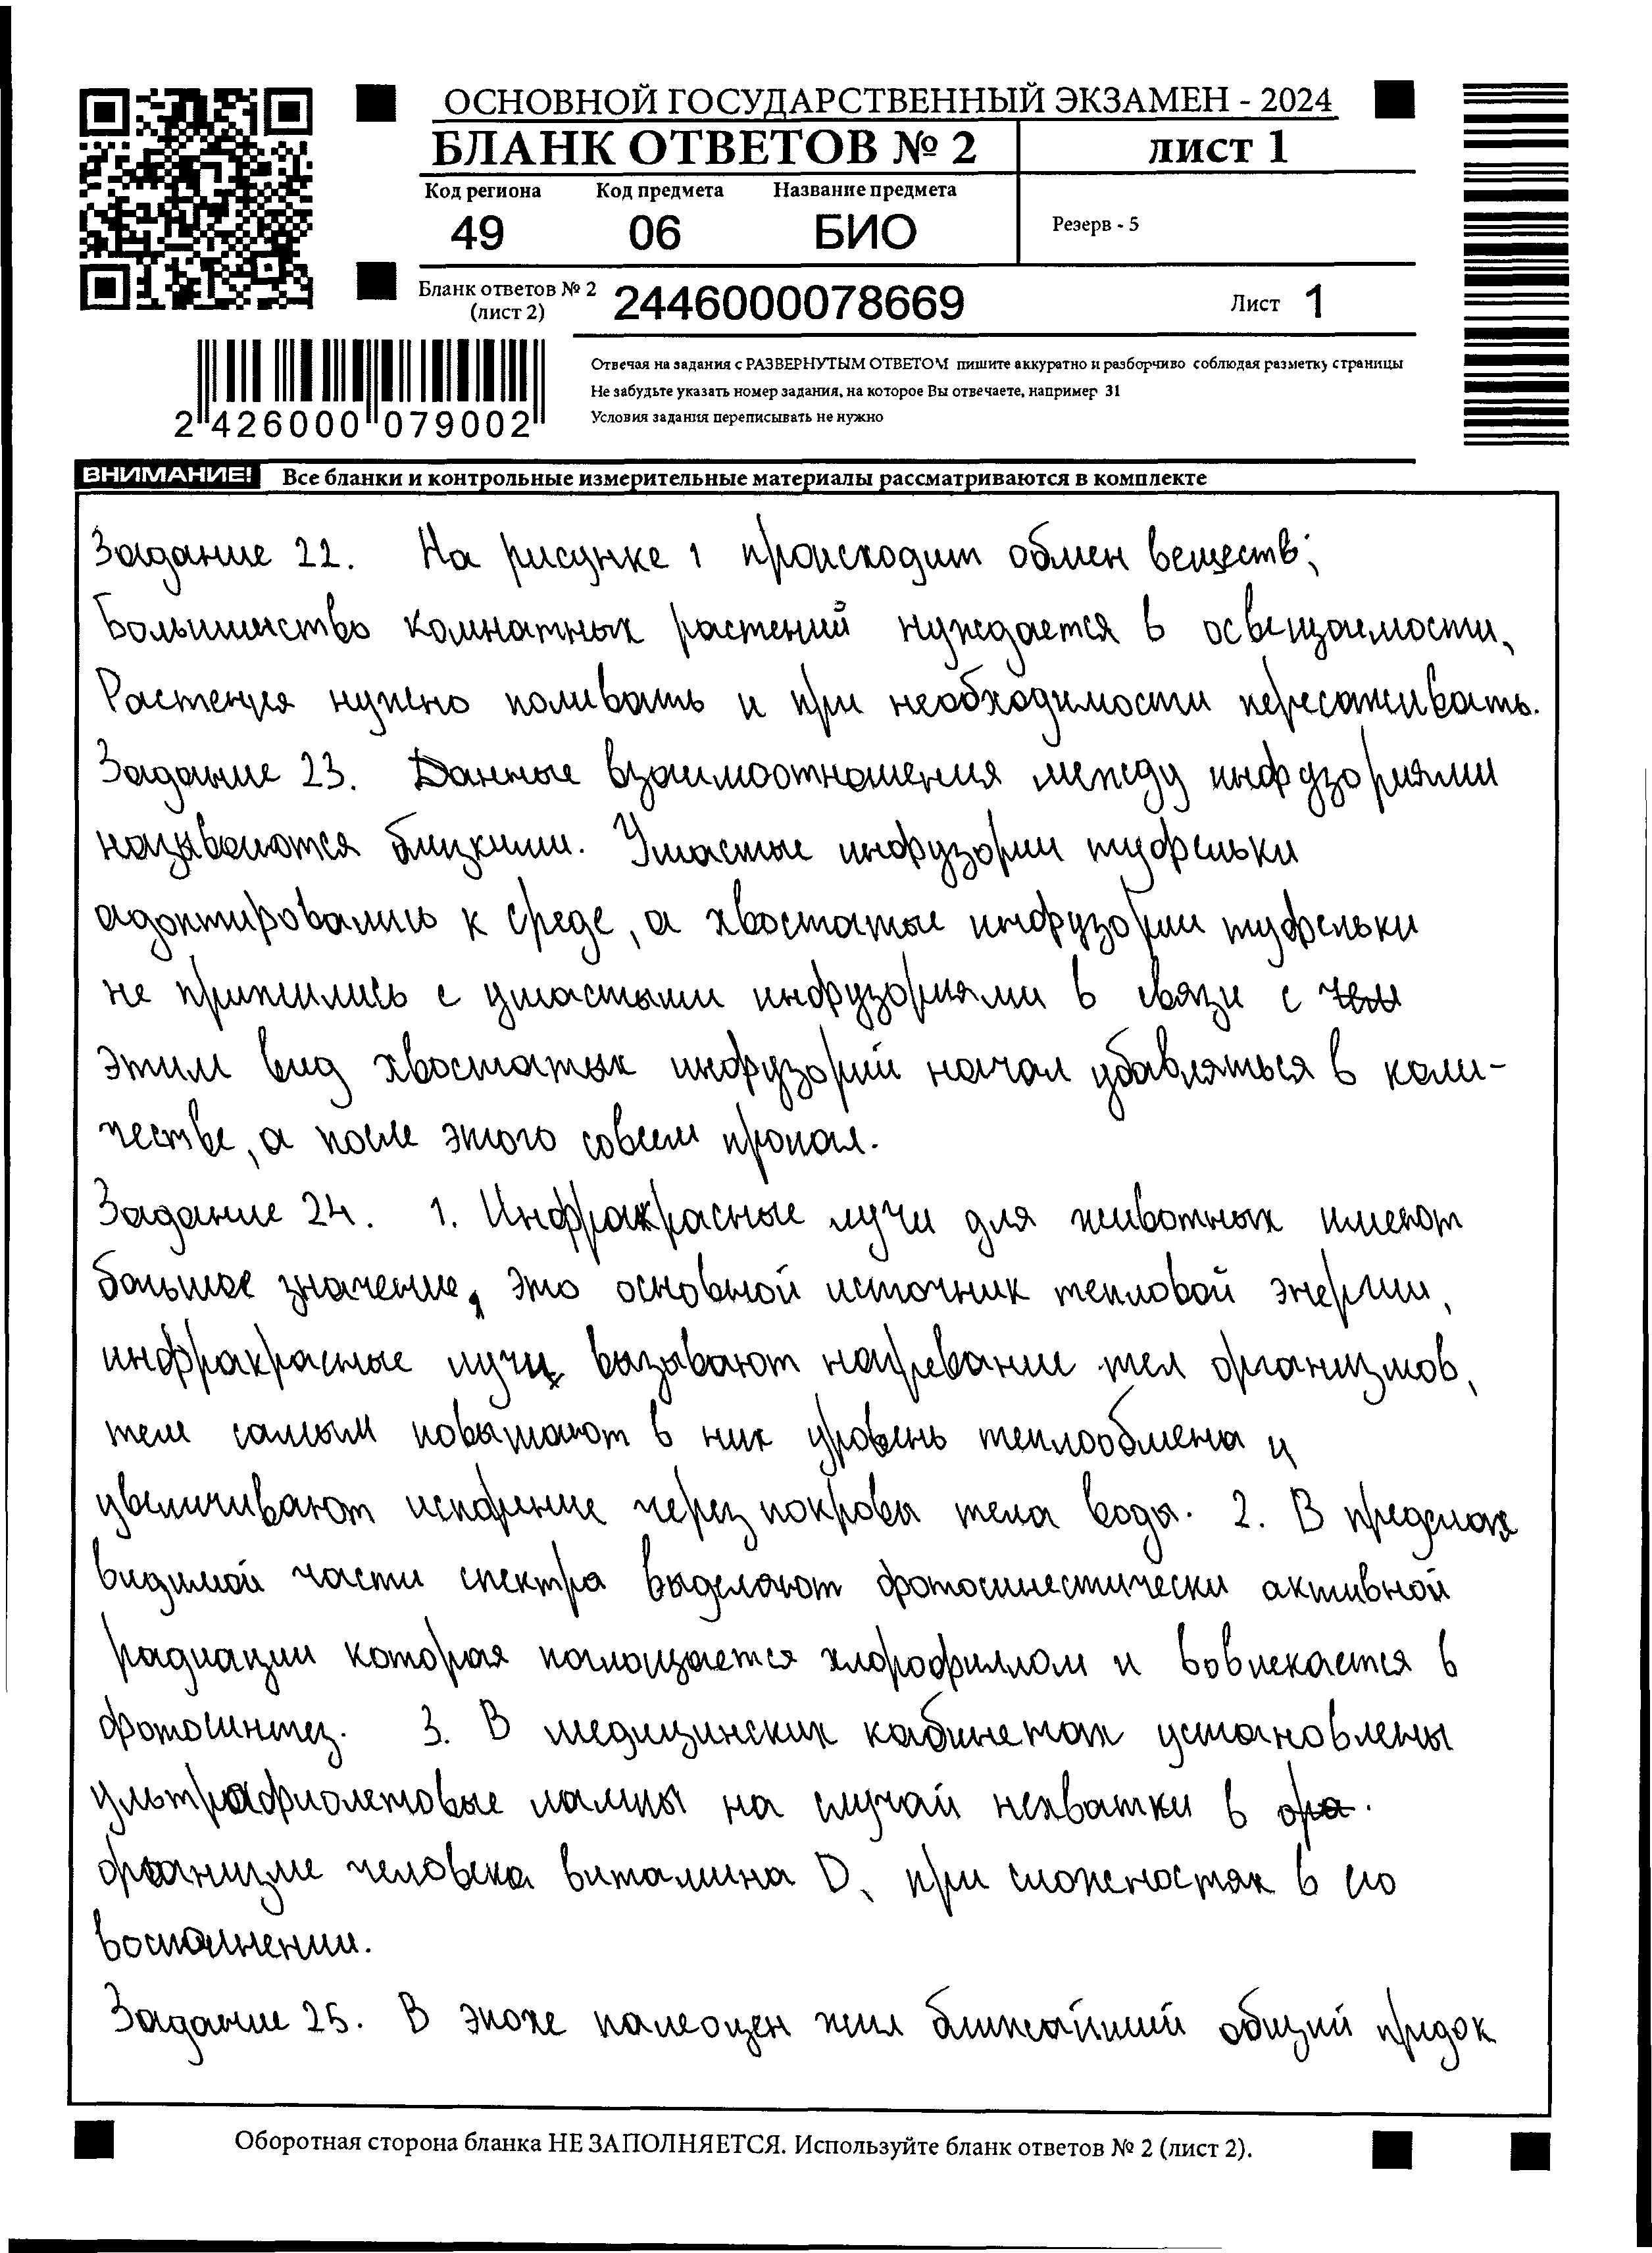 ОСНОВНОЙ ГОСУДАРСТВЕННЫЙ ЭКЗАМЕН - 2024
БЛАНК ОТВЕТОВ № 2
лист 1
Код региона Код предмета Название предмета
49 06 БИО
Резерв - 5
Бланк ответов № 2
(лист 2)
2446000078669
Лист 1
2 426000 079002
Отвечая на задания с РАЗВЕРНУТЫМ ОТВЕТОМ пишите аккуратно и разборчиво соблюдая разметку страницы
Не забудьте указать номер задания, на которое Вы отвечаете, например 31
Условия задания переписывать не нужно
ВНИМАНИЕ! Все бланки и контрольные измерительные материалы рассматриваются в комплекте
Задание 22. На рисунке 1 происходит обмен веществ;
Большинство комнатных растений нуждается в освещаемости,
Растения нужно поливать и при необходимости пересаживать.
Задание 23. Данные взаимоотношения между инфузориями
называются близкими. Ушастые инфузории туфельки
адоптировались к среде, а хвостатые инфузории туфельки
не прижились с ушастыми инфузориями в связи с чем
этим вид хвостатых инфузорий начал убавляться в коли-
честве, а после этого совсем пропал.
Задание 24. 1. Инфракрасные лучи для животных имеют
большое значение, это основной источник тепловой энергии,
инфракрасные лучи вызывают нагревание тел организмов,
тем самым повышают в них уровень теплообмена и
увеличивают испарение через покровы тела воды. 2. В пределах
видимой части спектра выделяют фотосинестически активной
радиации которая поглощается хлорофиллом и вовлекается в
фотосинтез. 3. В медицинских кабинетах установлены
ультрафиолетовые лампы на случай нехватки в ора.
организме человека витамина D, при сложностях в его
восполнении.
Задание 25. В эпохе палеоцен жил ближайший общий предок
Оборотная сторона бланка НЕ ЗАПОЛНЯЕТСЯ. Используйте бланк ответов № 2 (лист 2).